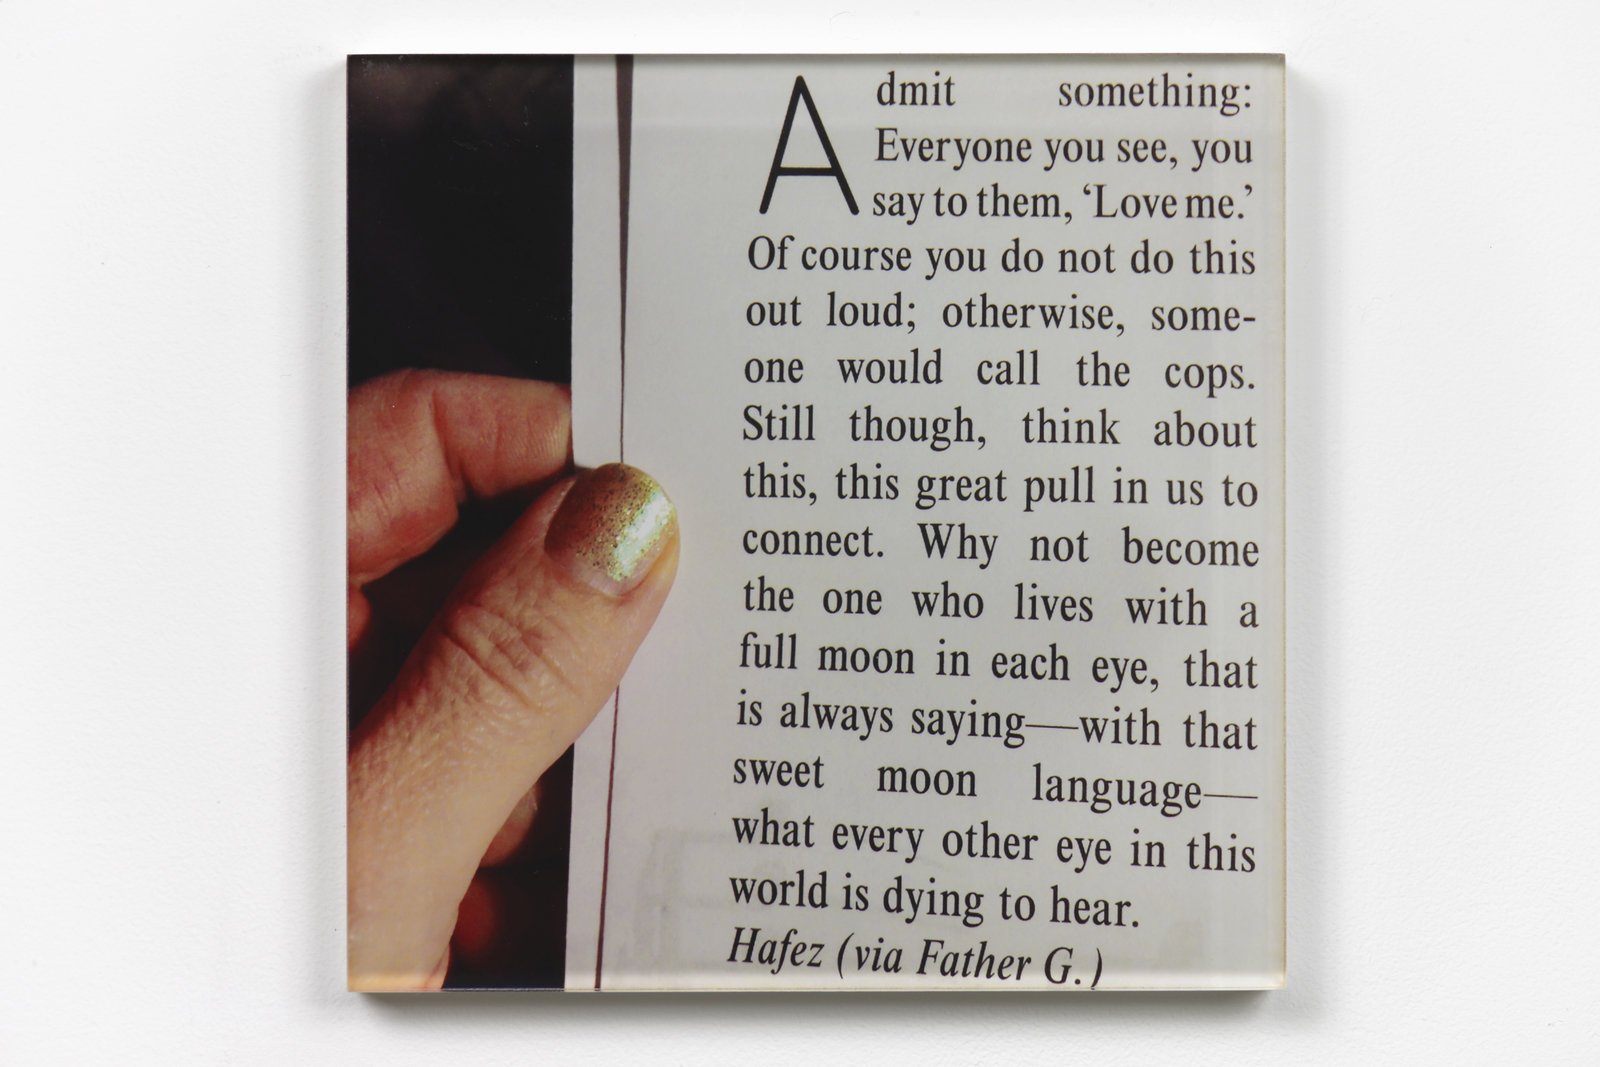 Admit something:
Everyone you see, you
say to them, ‘Love me.’
Of course you do not do this
out loud; otherwise, some-
one would call the cops.
Still though, think about
this, this great pull in us to
connect. Why not become
the one who lives with a
full moon in each eye, that
is always saying—with that
sweet moon language—
what every other eye in this
world is dying to hear.
Hafez (via Father G.)